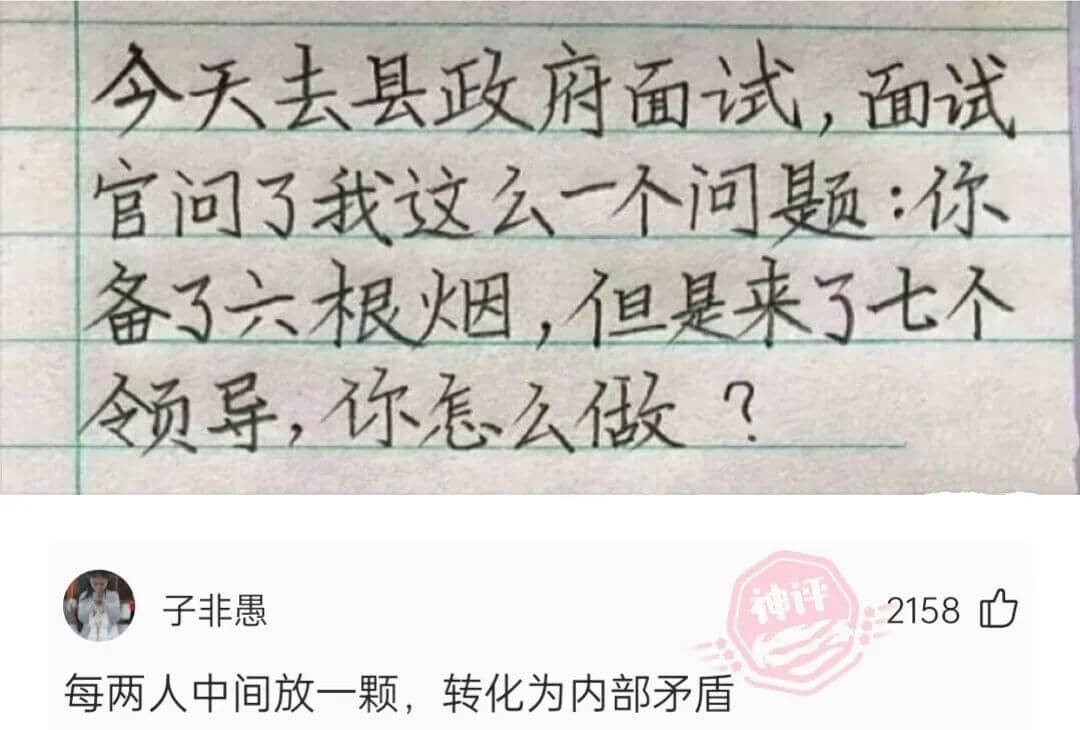 今天去县政府面试,面试
官问了我这么一个问题:你
备了六根烟,但是来了七个
领导,你怎么做?
子非愚
神评
2158
每两人中间放一颗，转化为内部矛盾